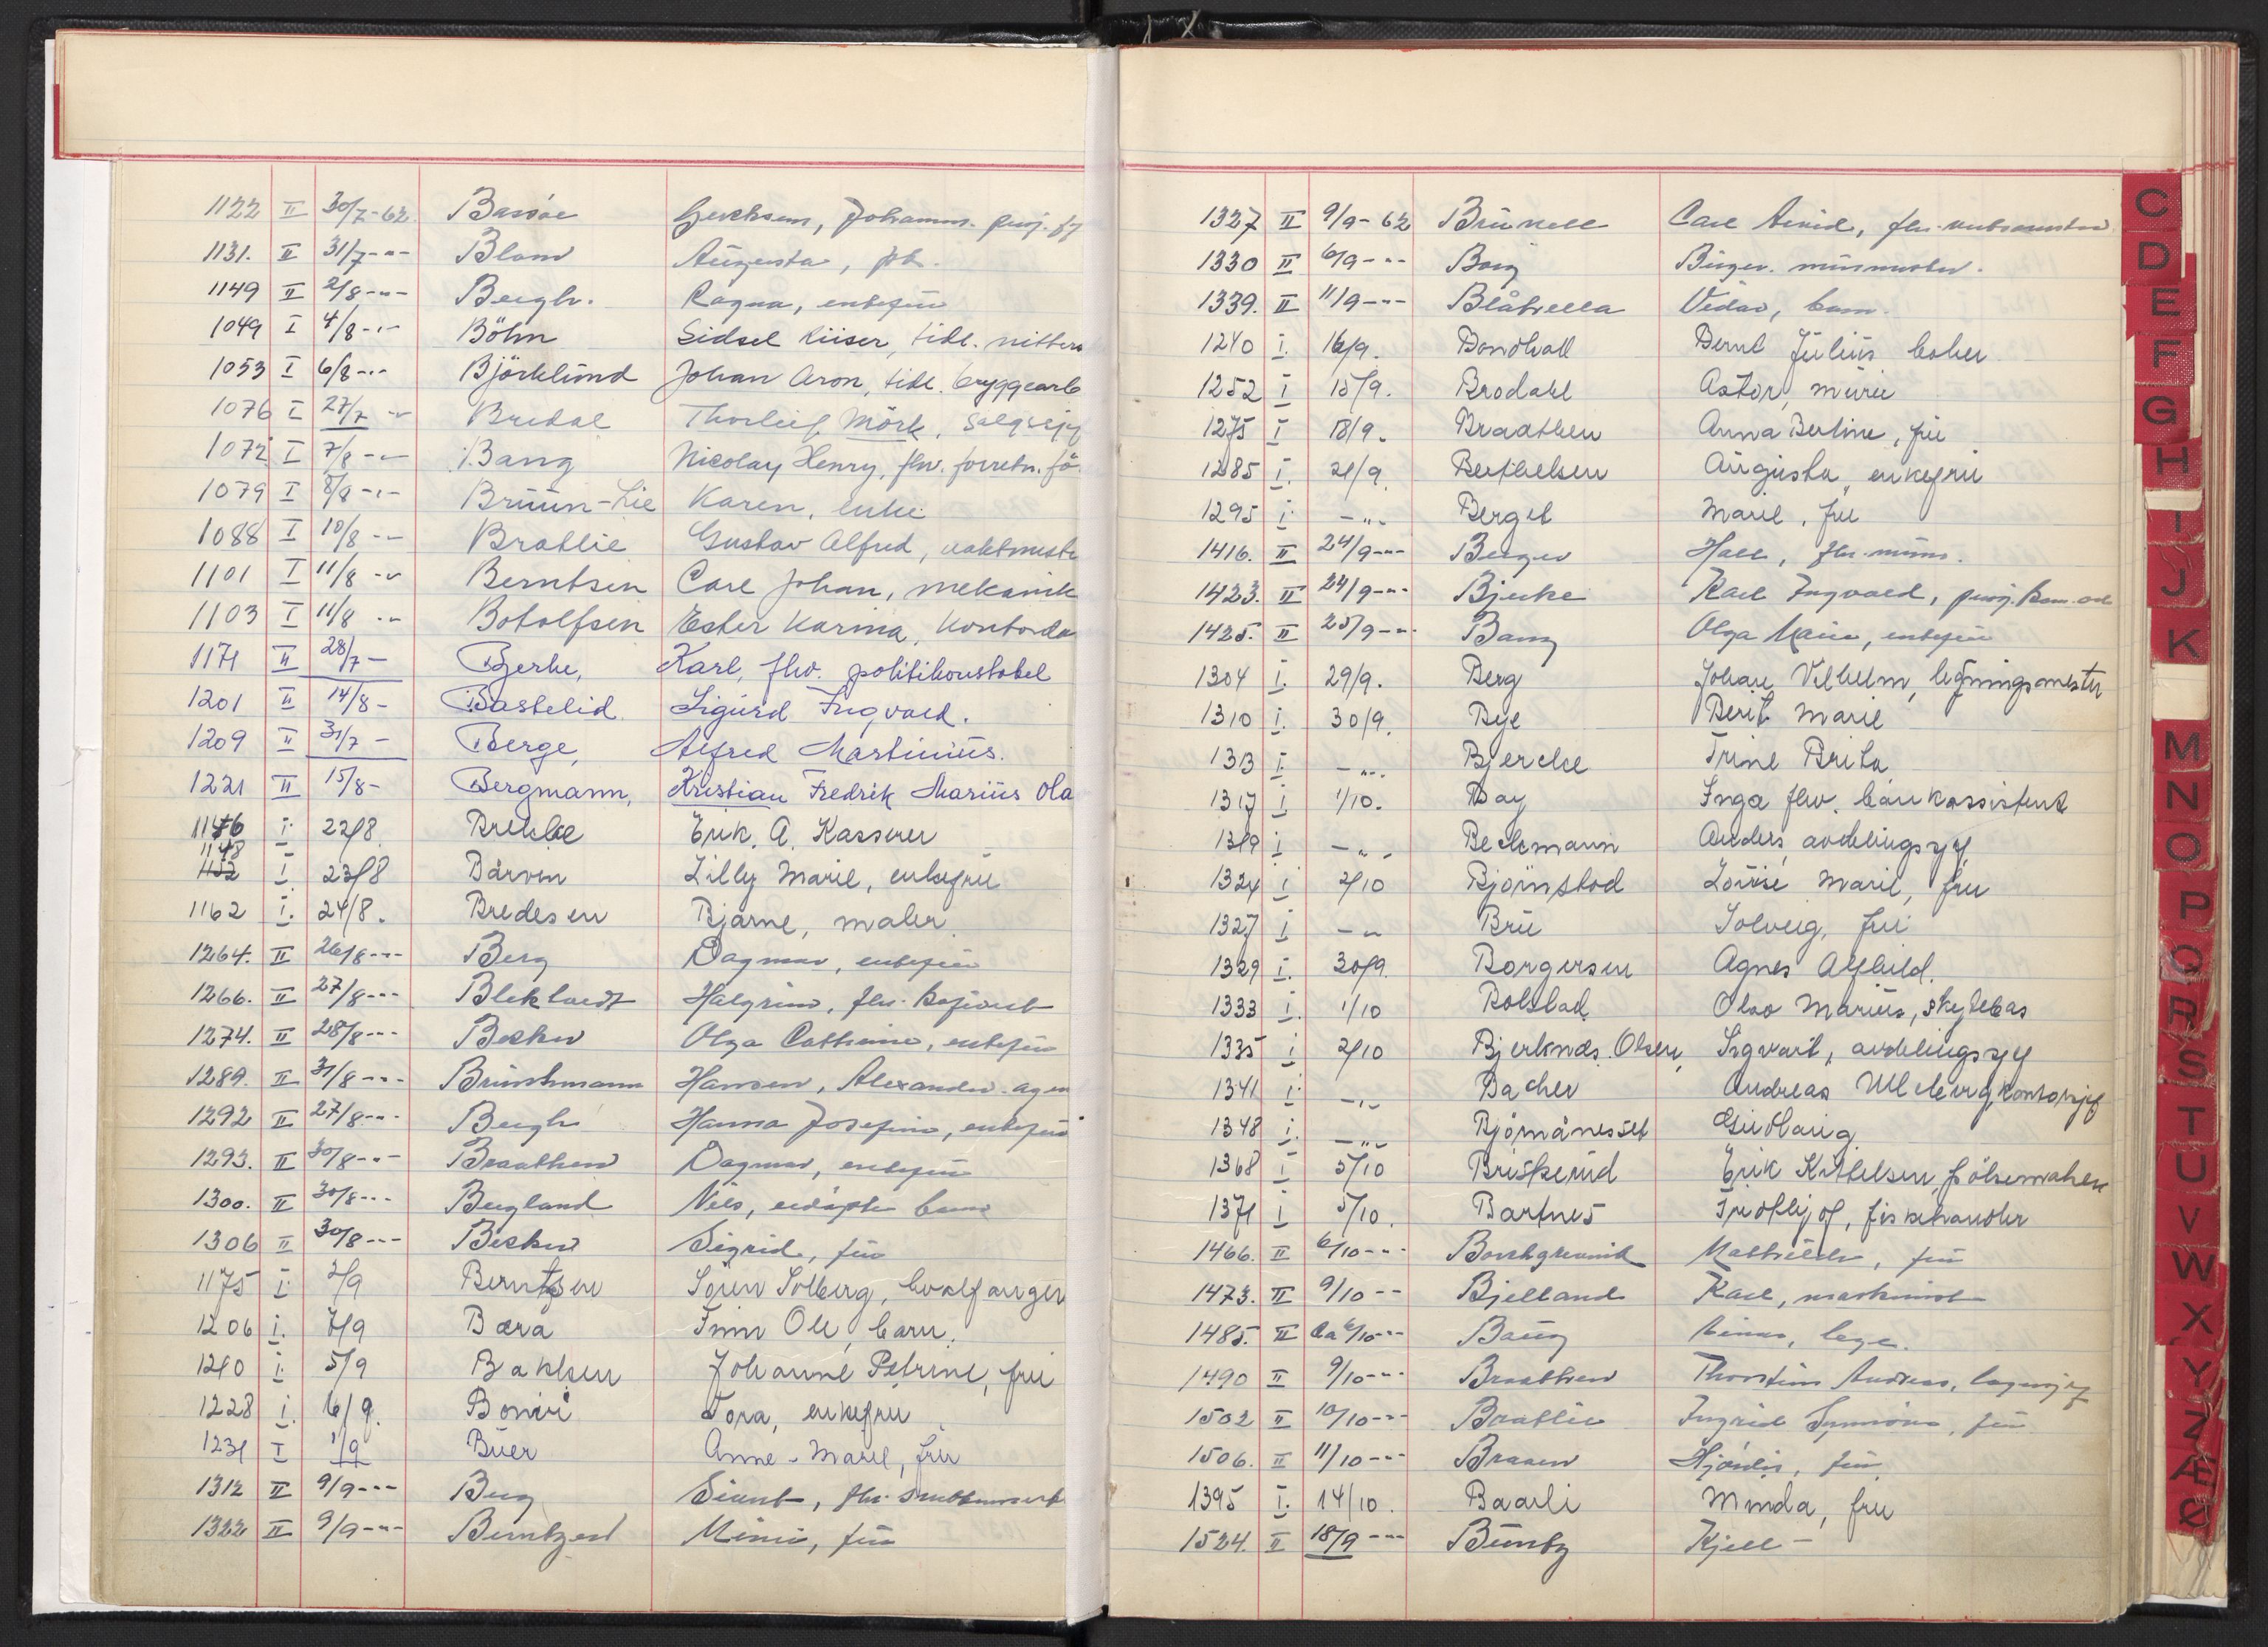 1122 II 30/7-62. Bassöe Gerchsem, Johannes. pens.
1131. II 31/7-"- Blom Augusta, frk.
1149 II 2/8-"- Bergh. Ragna, enkefru
1049 I 4/8-"- Böhm Sidsel Kiiser, tidl.
1053 I 6/8-"- Björklund Johan Aron, tidl. bryggearb
1076 I 27/7 -"- Bredal Thorleif Mörk, salgssj
1072 I 7/8-"- Bang Nicolay Henry, fhv. forretn. fö
1079 I 8/8-"- Bruun-Lie Karen, enke
1088 I 10/8-"- Bratlie Gustav Alfred, vaktmest
1101 I 11/8-"- Berntsen Carl Johan, mekanik
1103 I 11/8-"- Botolfsen Ester Karina, kontorda
1171 II 28/7- Bjerke, Karl, fhv. politikonstabel
1201 II 14/8- Bastelid. Sigurd Ingvald.
1209 II 31/7- Berge, Alfred Martinius.
1221 II 15/8- Bergmann, Kristian Fredrik Marius Ola
1146 I. 22/8. Brekke Erik. A. Kasserer
1148 1152 I. 23/8 Bårvin Lilly Marie, enkefru
1162 I. 24/8. Bredesen Bjarne, maler.
1264. II 26/8-"- Berg Dagmar, enkefru
1266. II 27/8-"- Blekkerdt Halgrim, fhv.
1274. II 28/8-"- Becker Olga Cathrine, enkefru
1289. II 31/8-"- Brinchmann Hansen, Alexander. agen
1292 II 27/8-"- Bergh Hanna Josefine, enkefru
1293. II 30/8-"- Braathen Dagmar, enkefru
1300. II 30/8-"- Bergland Nils, barn
1306 II 30/8-"- Becker Sigrid, fru
1175 I. 2/9 Berntsen Sören Solberg, hvalfanger
1206 I. 7/9 Bæra Finn Ole, barn.
1210 I. 5/9 Bakken Johanne Petrine, fru
1228 I. 6/9. Bonvi Tora, enkefru
1231 I 1/9 Buer Anne-Marie, fru
1312 II 9/9-"- Berg Sivert, fhv.
1322 II 9/9-"- Berntzen Mimi, fru
1327 II 9/9-62 Brunell Carl Arvid, fhv.
1330 II 6/9-"- Borg Birger. murmester.
1339. II 11/9-"- Blåtiella Vidar, barn.
1240 I. 16/9. Bondhall Bernt Julius
1252 I 15/9. Brodahl Astor, murer
1275 I 18/9. Braathen Anna Bertine, fru
1285 I. 21/9. Berthelsen Augusta, enkefru
1295 I. -"- Berget Marie, fru
1416. II 24/9-"- Berger Hall, fhv.
1423. II 24/9-"- Bjerke Karl Ingvald, pens.
1425. II 25/9-"- Bang Olga Marie, enkefru
1304 I. 29/9. Berg Johan Vilhelm, ligningsmester
1310 I. 30/9. Bye Berit Marie
1313 I. -"-. Bjercke Trine Brita
1317 I 1/10. Bay Inga fhv. bankassistent
1319 I -"- Beckmann Anders, avdelingssjef
1324 I 2/10 Bjørnstad Lovise Marie, fru
1327 I -"- Bru Solveig, fru
1329 I. 30/9. Borgersen Agnes Alfhild.
1333 I. 1/10 Bolstad Olav Marius, skytebas
1335 I 2/10 Bjerknds. Olsen, Ingvart, avdelingssjef
1341 I. -"- Bacher Andreas Ulleberg, kontorsjef
1348 I. -"- Bjømånesset Gudlaug
1368 I 5/10 Briskerud Erik Kittelsen, pölsemaker
1371 I 5/10. Bartnes Fridthjof, fiskehandler
1466. II 6/10-"- Borchgrevink Mathilde, fru
1473. II 9/10-"- Bjelland Karl, maskinist
1485. II Ca 6/10-"- Baug Einar, lege.
1490 II 9/10-"- Braathen Thorstein Andreas, lagersjef
1502 II 10/10-"- Bratlie Ingrid Synnöve, fru
1506. II 11/10-"- Braaen Hjördis, fru
1395 I. 14/10. Baarli Minda, fru
1524. II 18/9-"- Bunby Kjell-
C
D
E
F
G
H
I
J
K
M
N
O
P
Q
R
S
T
U
V
W
X
Y
Z
Æ
Ø